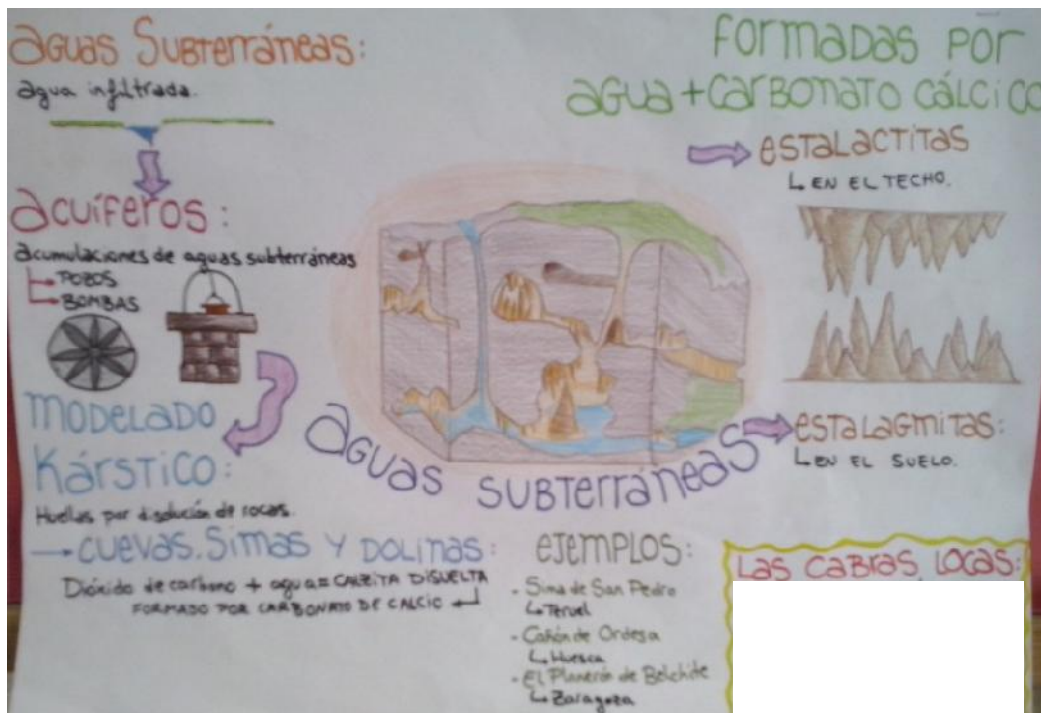 aguas Subterráneas:
agua infiltrada.
acuíferos:
acumulaciones de aguas subterráneas
POZOS
BOMBAS
MODELADO
Kárstico:
Huellas por disolución de rocas.
CUEVAS, SIMAS Y DOLINAS:
Dióxido de carbono + agua = CALCITA DISUELTA
FORMADO POR CARBONATO DE CALCIO
AGUAS SUBTERRÁNEAS
FORMADAS POR
AGUA + CARBONATO CÁLCICO
ESTALACTITAS
EN EL TECHO.
ESTALAGMITAS:
EN EL SUELO.
EJEMPLOS:
- Sima de San Pedro
Teruel
- Cañón de Ordesa
Huesca
- El Planerón de Belchite
Zaragoza
LAS CABRAS LOCAS: